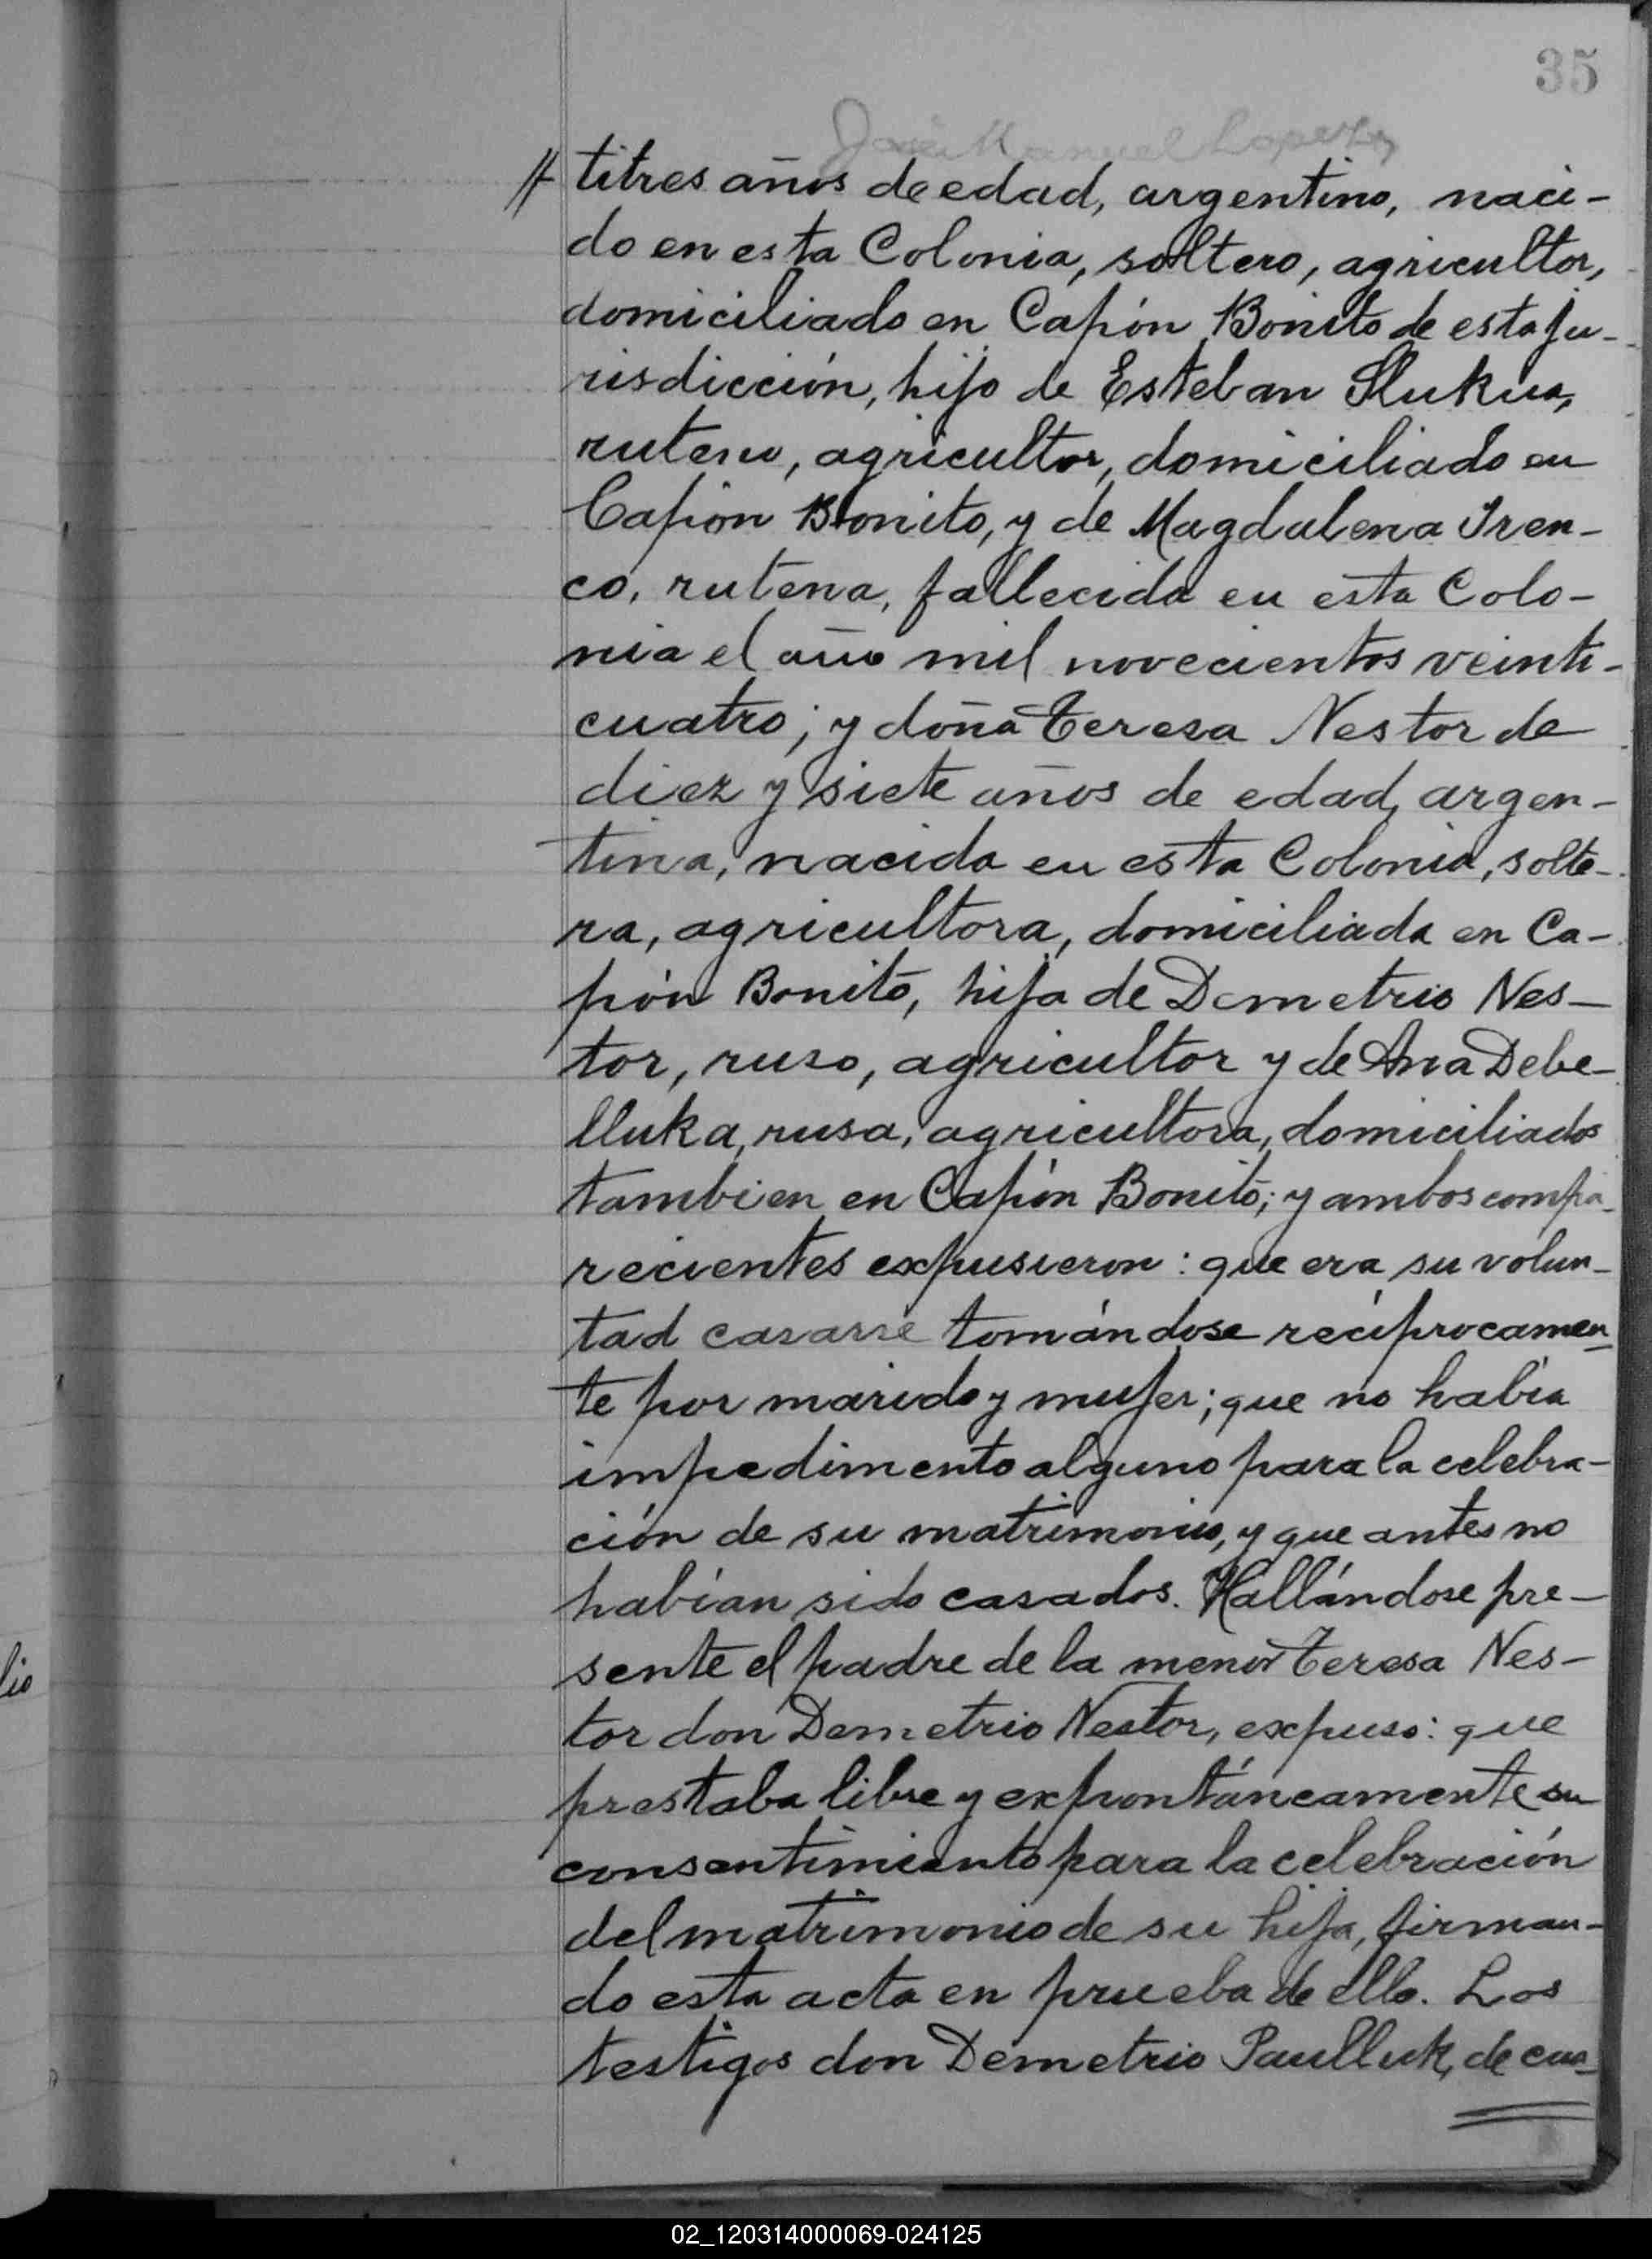 35
José Manuel Lopez
// titres años de edad, argentino, naci-
do en esta Colonia, soltero, agricultor,
domiciliado en Capón Bonito de esta ju-
risdicción, hijo de Esteban Slukua,
ruteno, agricultor, domiciliado en
Capión Bonito, y de Magdalena Iren-
co, rutena, fallecida en esta Colo-
nia el año mil novecientos veinti-
cuatro; y doña Teresa Nestor de
diez y siete años de edad, argen-
tina, nacida en esta Colonia, solte-
ra, agricultora, domiciliada en Ca-
pón Bonito, hija de Demetrio Nes-
tor, ruso, agricultor y de Ana Debe-
lluka, rusa, agricultora, domiciliados
tambien en Capón Bonito; y ambos compa-
recientes expusieron: que era su volun-
tad casarse tomándose recíprocamen-
te por marido y mujer; que no había
impedimento alguno para la celebra-
ción de su matrimonio, y que antes no
habían sido casados. Hallándose pre-
sente el padre de la menor Teresa Nes-
tor don Demetrio Nestor, expuso: que
prestaba libre y expontáneamente su
consentimiento para la celebración
del matrimonio de su hija, firman-
do esta acta en prueba de ello. Los
testigos don Demetrio Paulluk, de cua-
lio
02_120314000069-024125